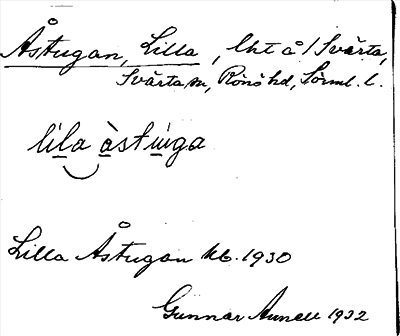 Åstugan, Lilla, lht å / Svärta,
Svärta sn, Rönö hd, Sörml. l.
lila àstúga
Lilla Åstugan kb. 1930
Gunnar Annell 1932